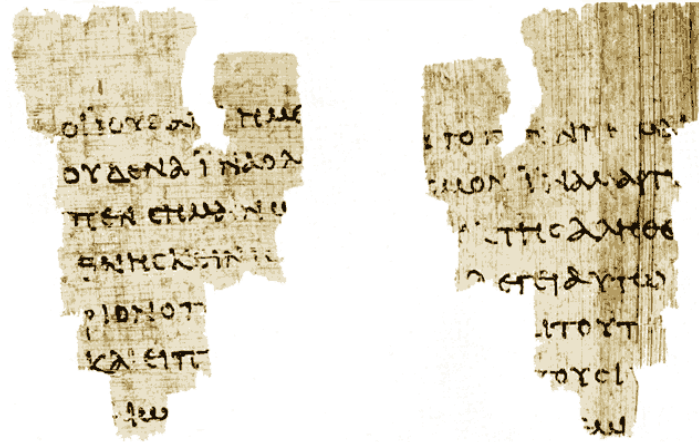 ΟΙ ΙΟΥΔΑΙ ΗΜΕ
ΟΥΔΕΝΑ ΪΝΑ Ο Λ
ΠΕΝ ϹΗΜΑΙΝΩ
ΘΝΗϹΚΕΙΝ
ΡΙΟΝ Ο Π
ΚΑΙ ΕΙΠ
ΑΙΩ
ΤΟ ΓΕΓΕΝΝΗΜΑΙ
ϹΜΟΝ ΪΝΑ ΜΑΡΤΥ
ΤΗϹ ΑΛΗΘΕ
ΛΕΓΕΙ ΑΥΤΩ
ΑΙ ΤΟΥΤ
ΤΟΥϹ Ι
ΕΜ